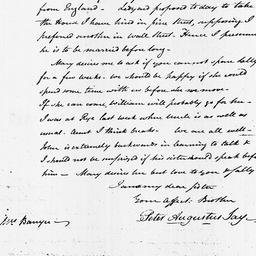 from England — Ledyard proposed to day to take
the House I have hired in Pine Street, supposing I
preferred another in Wall Street. Hence I presume
he is to be married before long —
Mary desires me to ask if you cannot spare Sally
for a few weeks. We should be happy if she could
spend some time with us before she we move —
If she can come, William will probably go for her —
I was at Rye last week when Uncle is as well as
usual. Aunt I think breaks — We are all well —
John is extremely backwards in learning to talk &
I should not be surprised if his sister should speak before
him — Mary desires her best love to you & Sally
I am my dear sister
Your affect. Brother
Peter Augustus Jay —
Mrs Banyer —